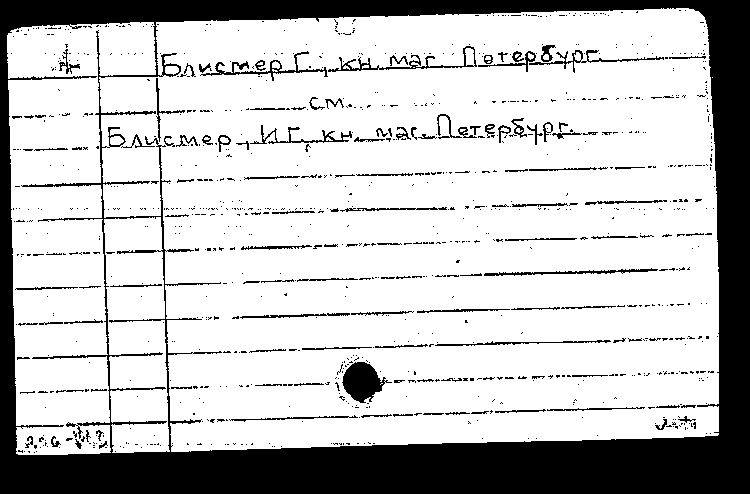 Блисмер Г., кн. маг. Петербург.
см.
Блисмер, И.Г., кн. маг. Петербург.